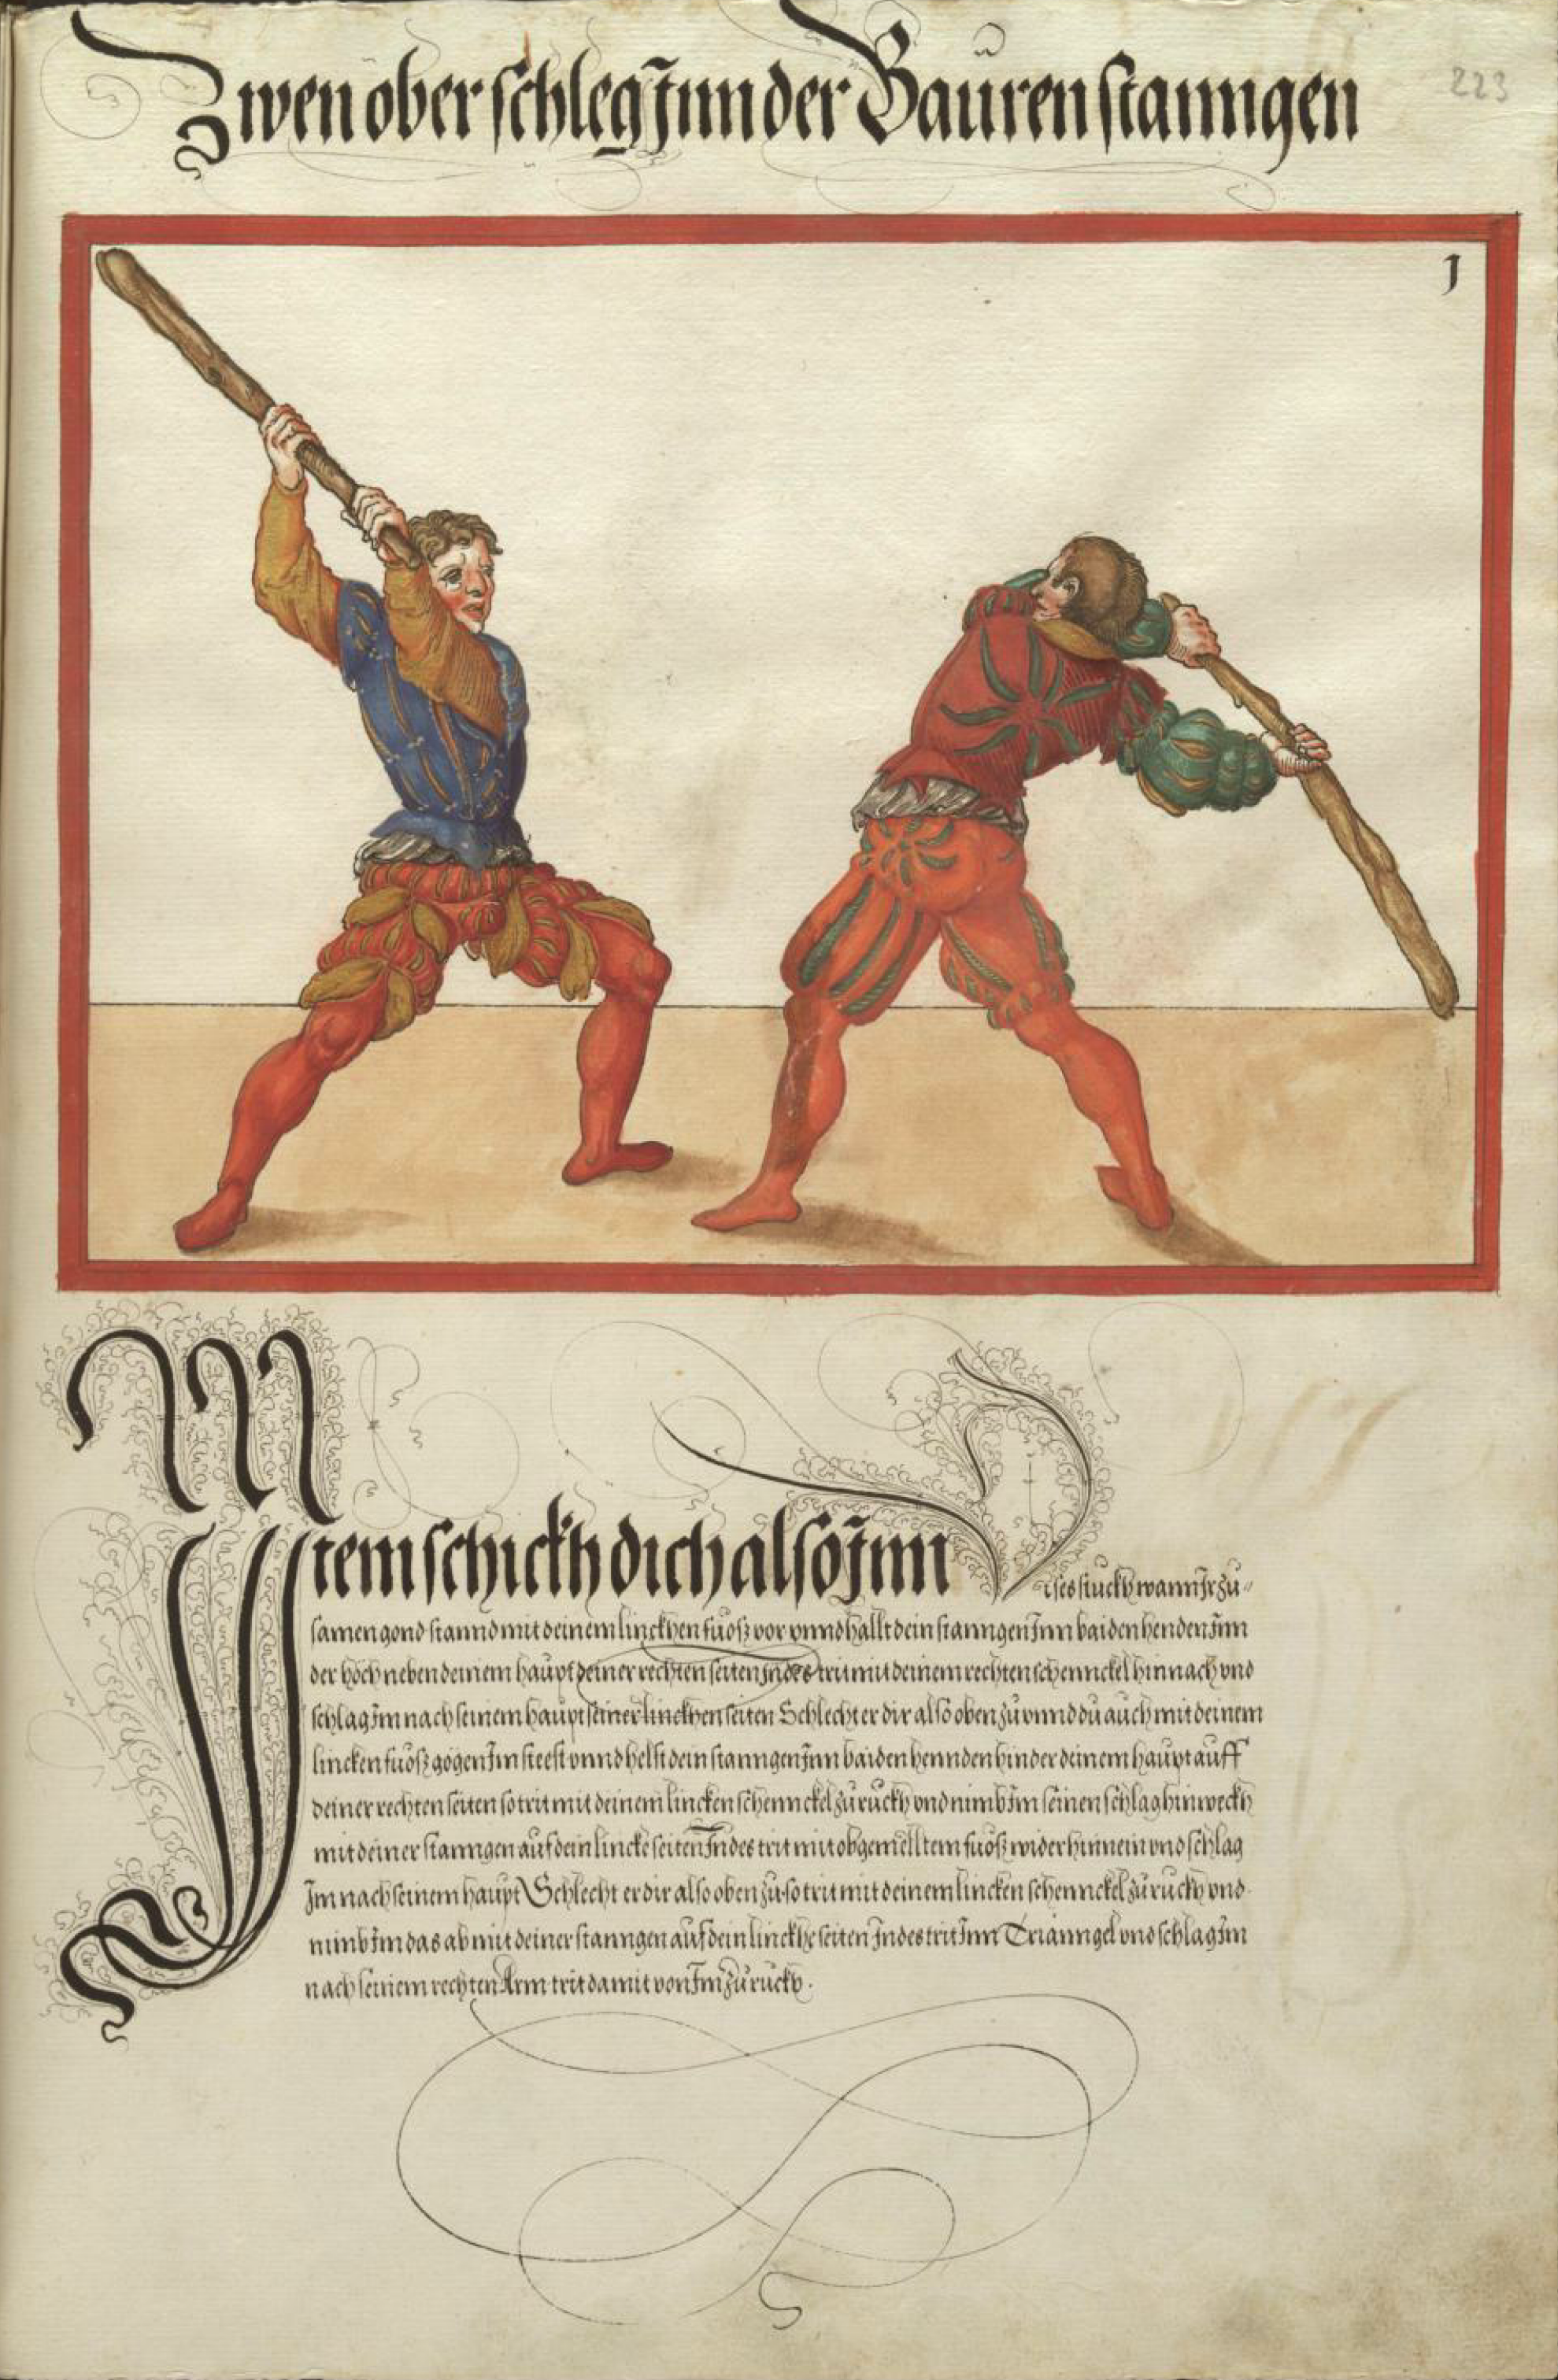 Zwen ober schleg Jnn der Bauren stanngen
223
1
Jtem schickh dich also Jnn D
ises stuckh wann Jr zu-
samen gond stannd mit deinem linckhen fuosz vor vnnd hallt dein stanngen Jnn baiden henden Jnn
der höch neben deinem haupt deiner rechten seiten Jndes trit mit deinem rechten schennckel hinnach vnd
schlag Jm nach seinem haupt seiner linckhen seiten Schlecht er dir also oben zu vnnd du auch mit deinem
lincken fuosz gögen Jm steest vnnd helst dein stanngen Jnn baiden hennden hinder deinem haupt auff
deiner rechten seiten so trit mit deinem lincken schennckel zuruckh vnd nimb Jm seinen schlag hinweckh
mit deiner stanngen auf dein lincke seiten Jndes trit mit obgemelltem fuosz wider hinnein vnd schlag
Jm nach seinem haupt Schlecht er dir also oben zu so trit mit deinem lincken schennckel zuruckh vnd
nimb Jm das ab mit deiner stanngen auf dein linckhe seiten Jndes trit Jnn Trianngel vnd schlag Jm
nach seinem rechten Arm trit damit von Jm zuruckh .